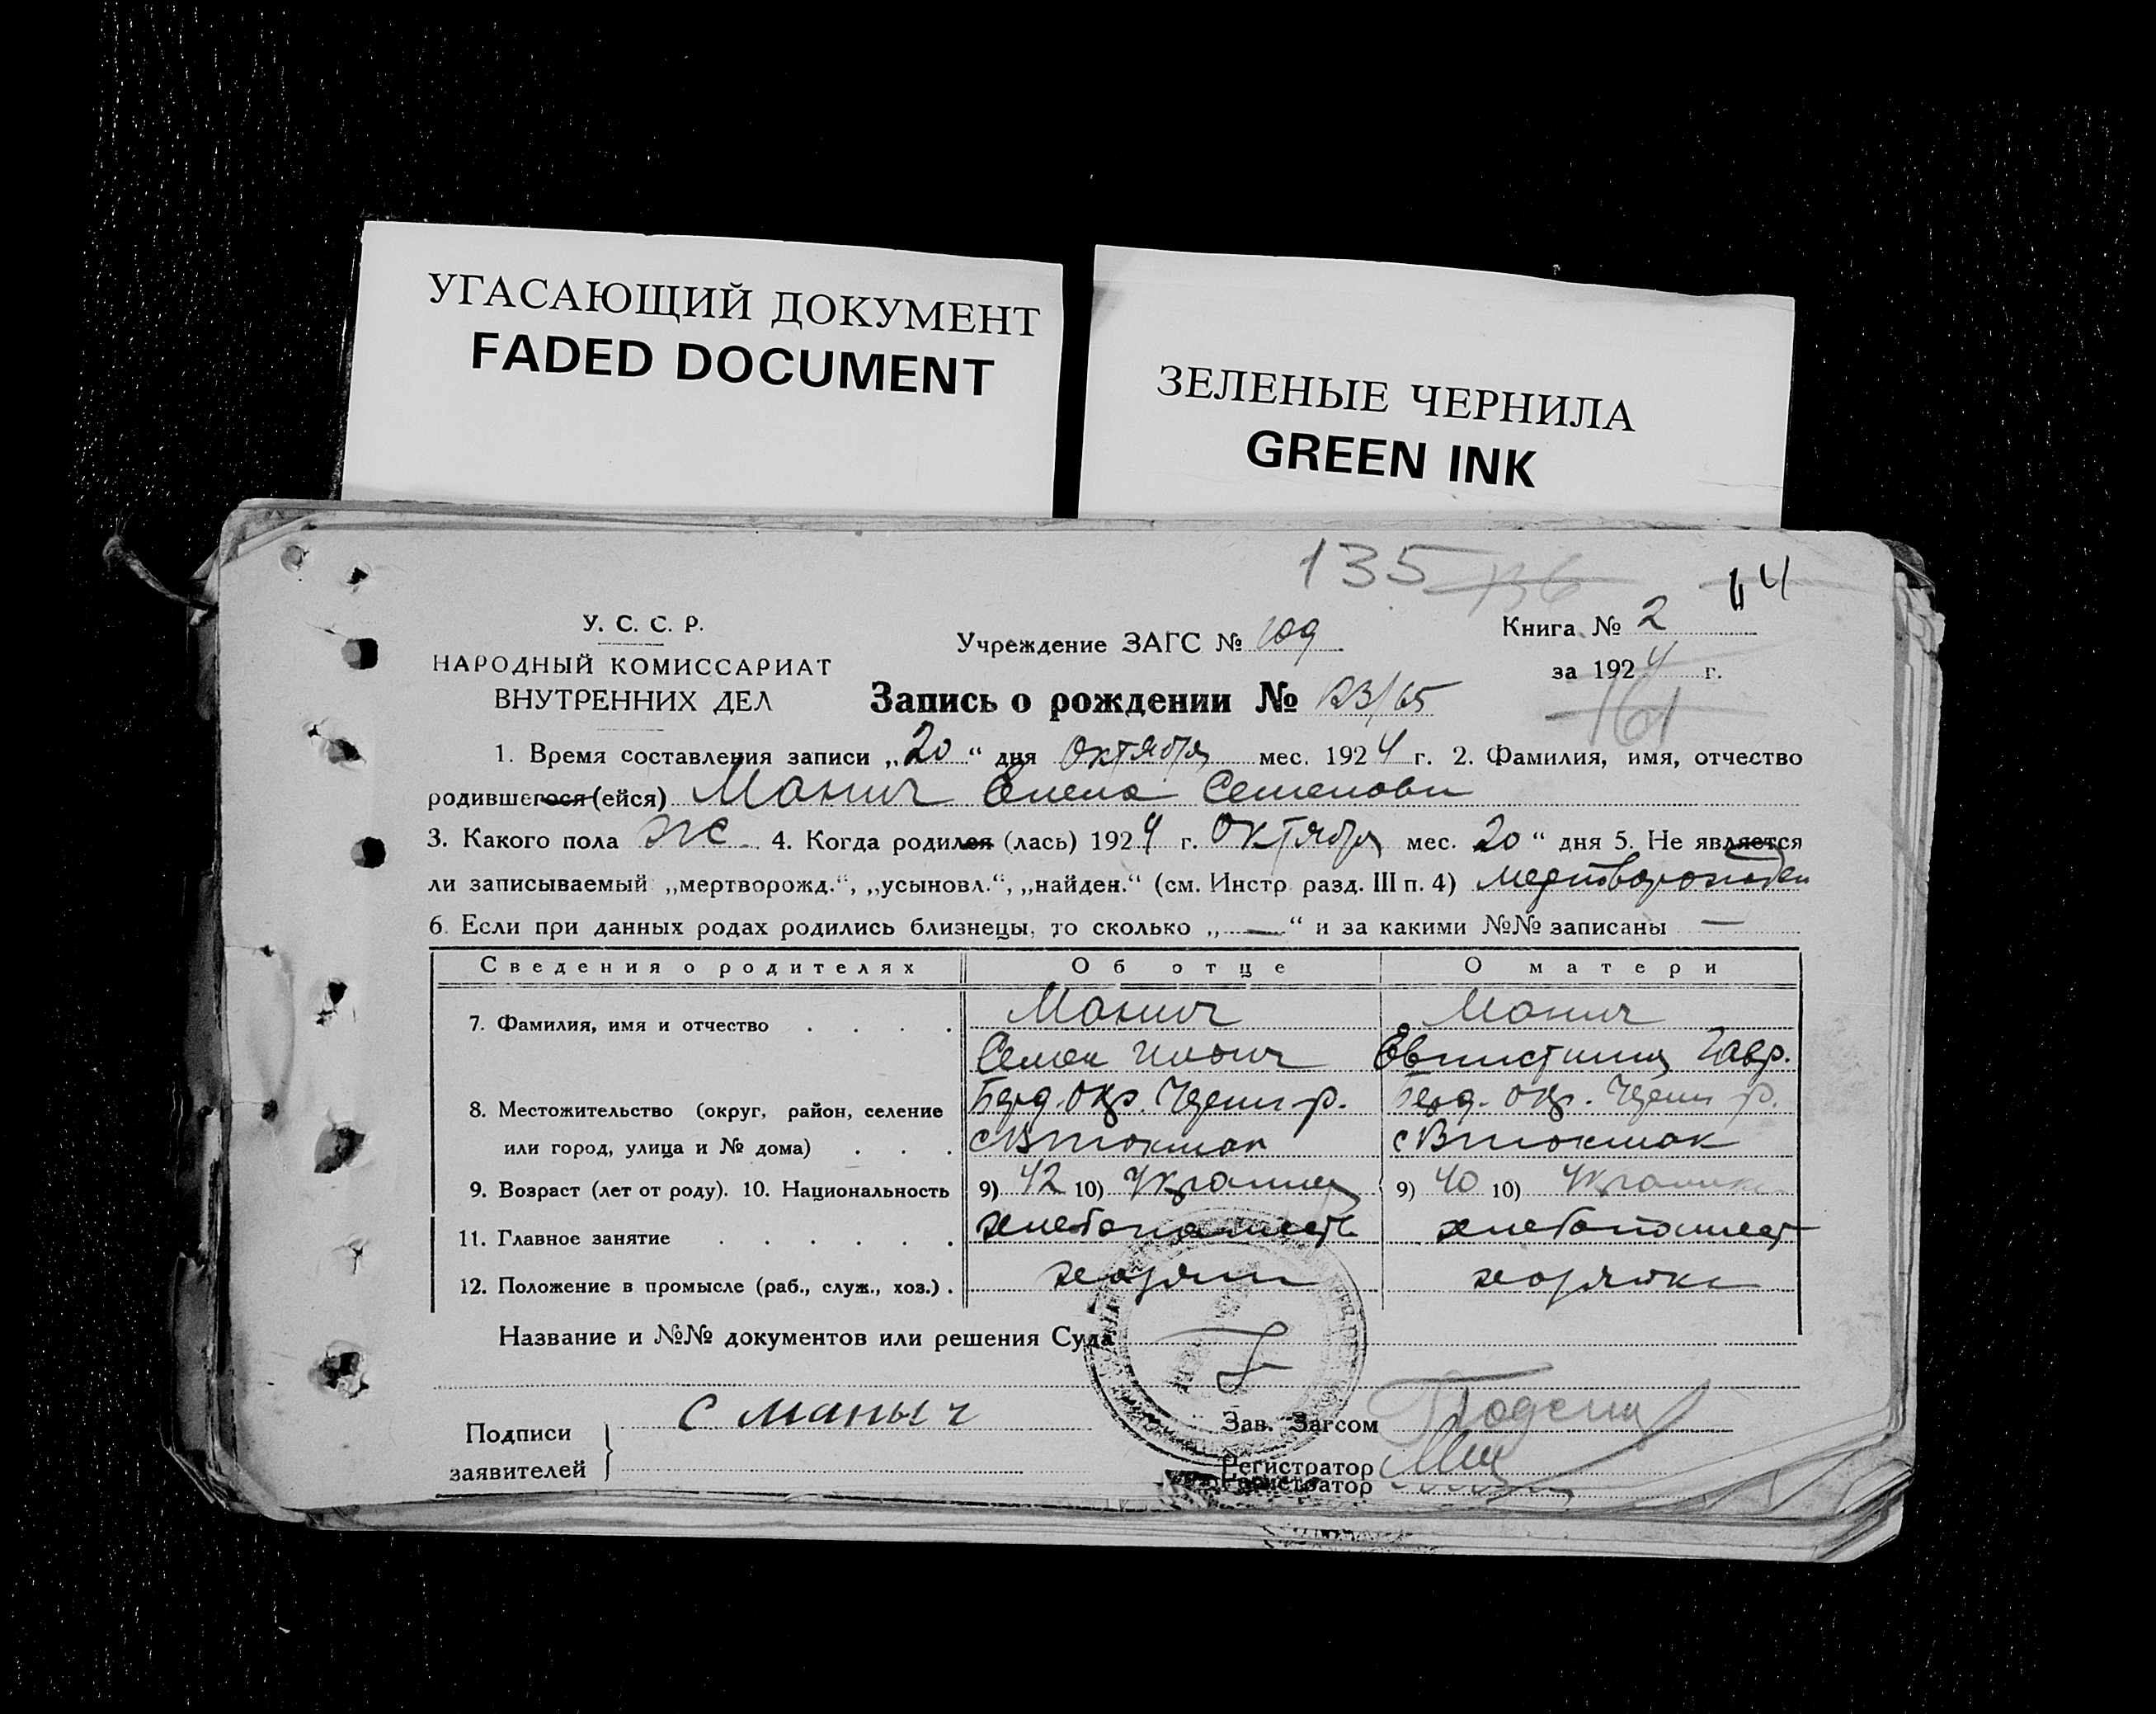 УГАСАЮЩИЙ ДОКУМЕНТ
FADED DOCUMENT
ЗЕЛЕНЫЕ ЧЕРНИЛА
GREEN INK
135 136 114
У. С. С. Р.
НАРОДНЫЙ КОМИССАРИАТ
ВНУТРЕННИХ ДЕЛ
Учреждение ЗАГС № 109
Книга № 2
за 1924 г.
161
Запись о рождении № /65
1. Время составления записи „20“ дня Октября мес. 1924 г. 2. Фамилия, имя, отчество
родившегося (ейся) Манич Елена Семеновн
3. Какого пола Ж 4. Когда родился (лась) 1924 г. Октября мес. 20“ дня 5. Не является
ли записываемый „мертворожд.“, „усыновл.“, „найден.“ (см. Инстр. разд. III п. 4) мертворожден
6. Если при данных родах родились близнецы, то сколько „—“ и за какими №№ записаны —
Сведения о родителях Об отце О матери
7. Фамилия, имя и отчество Манич Манич
Семен Гавр.
8. Местожительство (округ, район, селение Берд. окр. р. Берд. окр. р.
или город, улица и № дома) с В токмак с В токмак
9. Возраст (лет от роду). 10. Национальность 9) 42 10) Украинец 9) 40 10) Украинка
11. Главное занятие хлебопашест хлебопашест
12. Положение в промысле (раб., служ., хоз.) хозяин хозяйка
Название и №№ документов или решения Суда
Подписи
заявителей
С маныч
Зав. Загсом
Регистратор
Регистратор